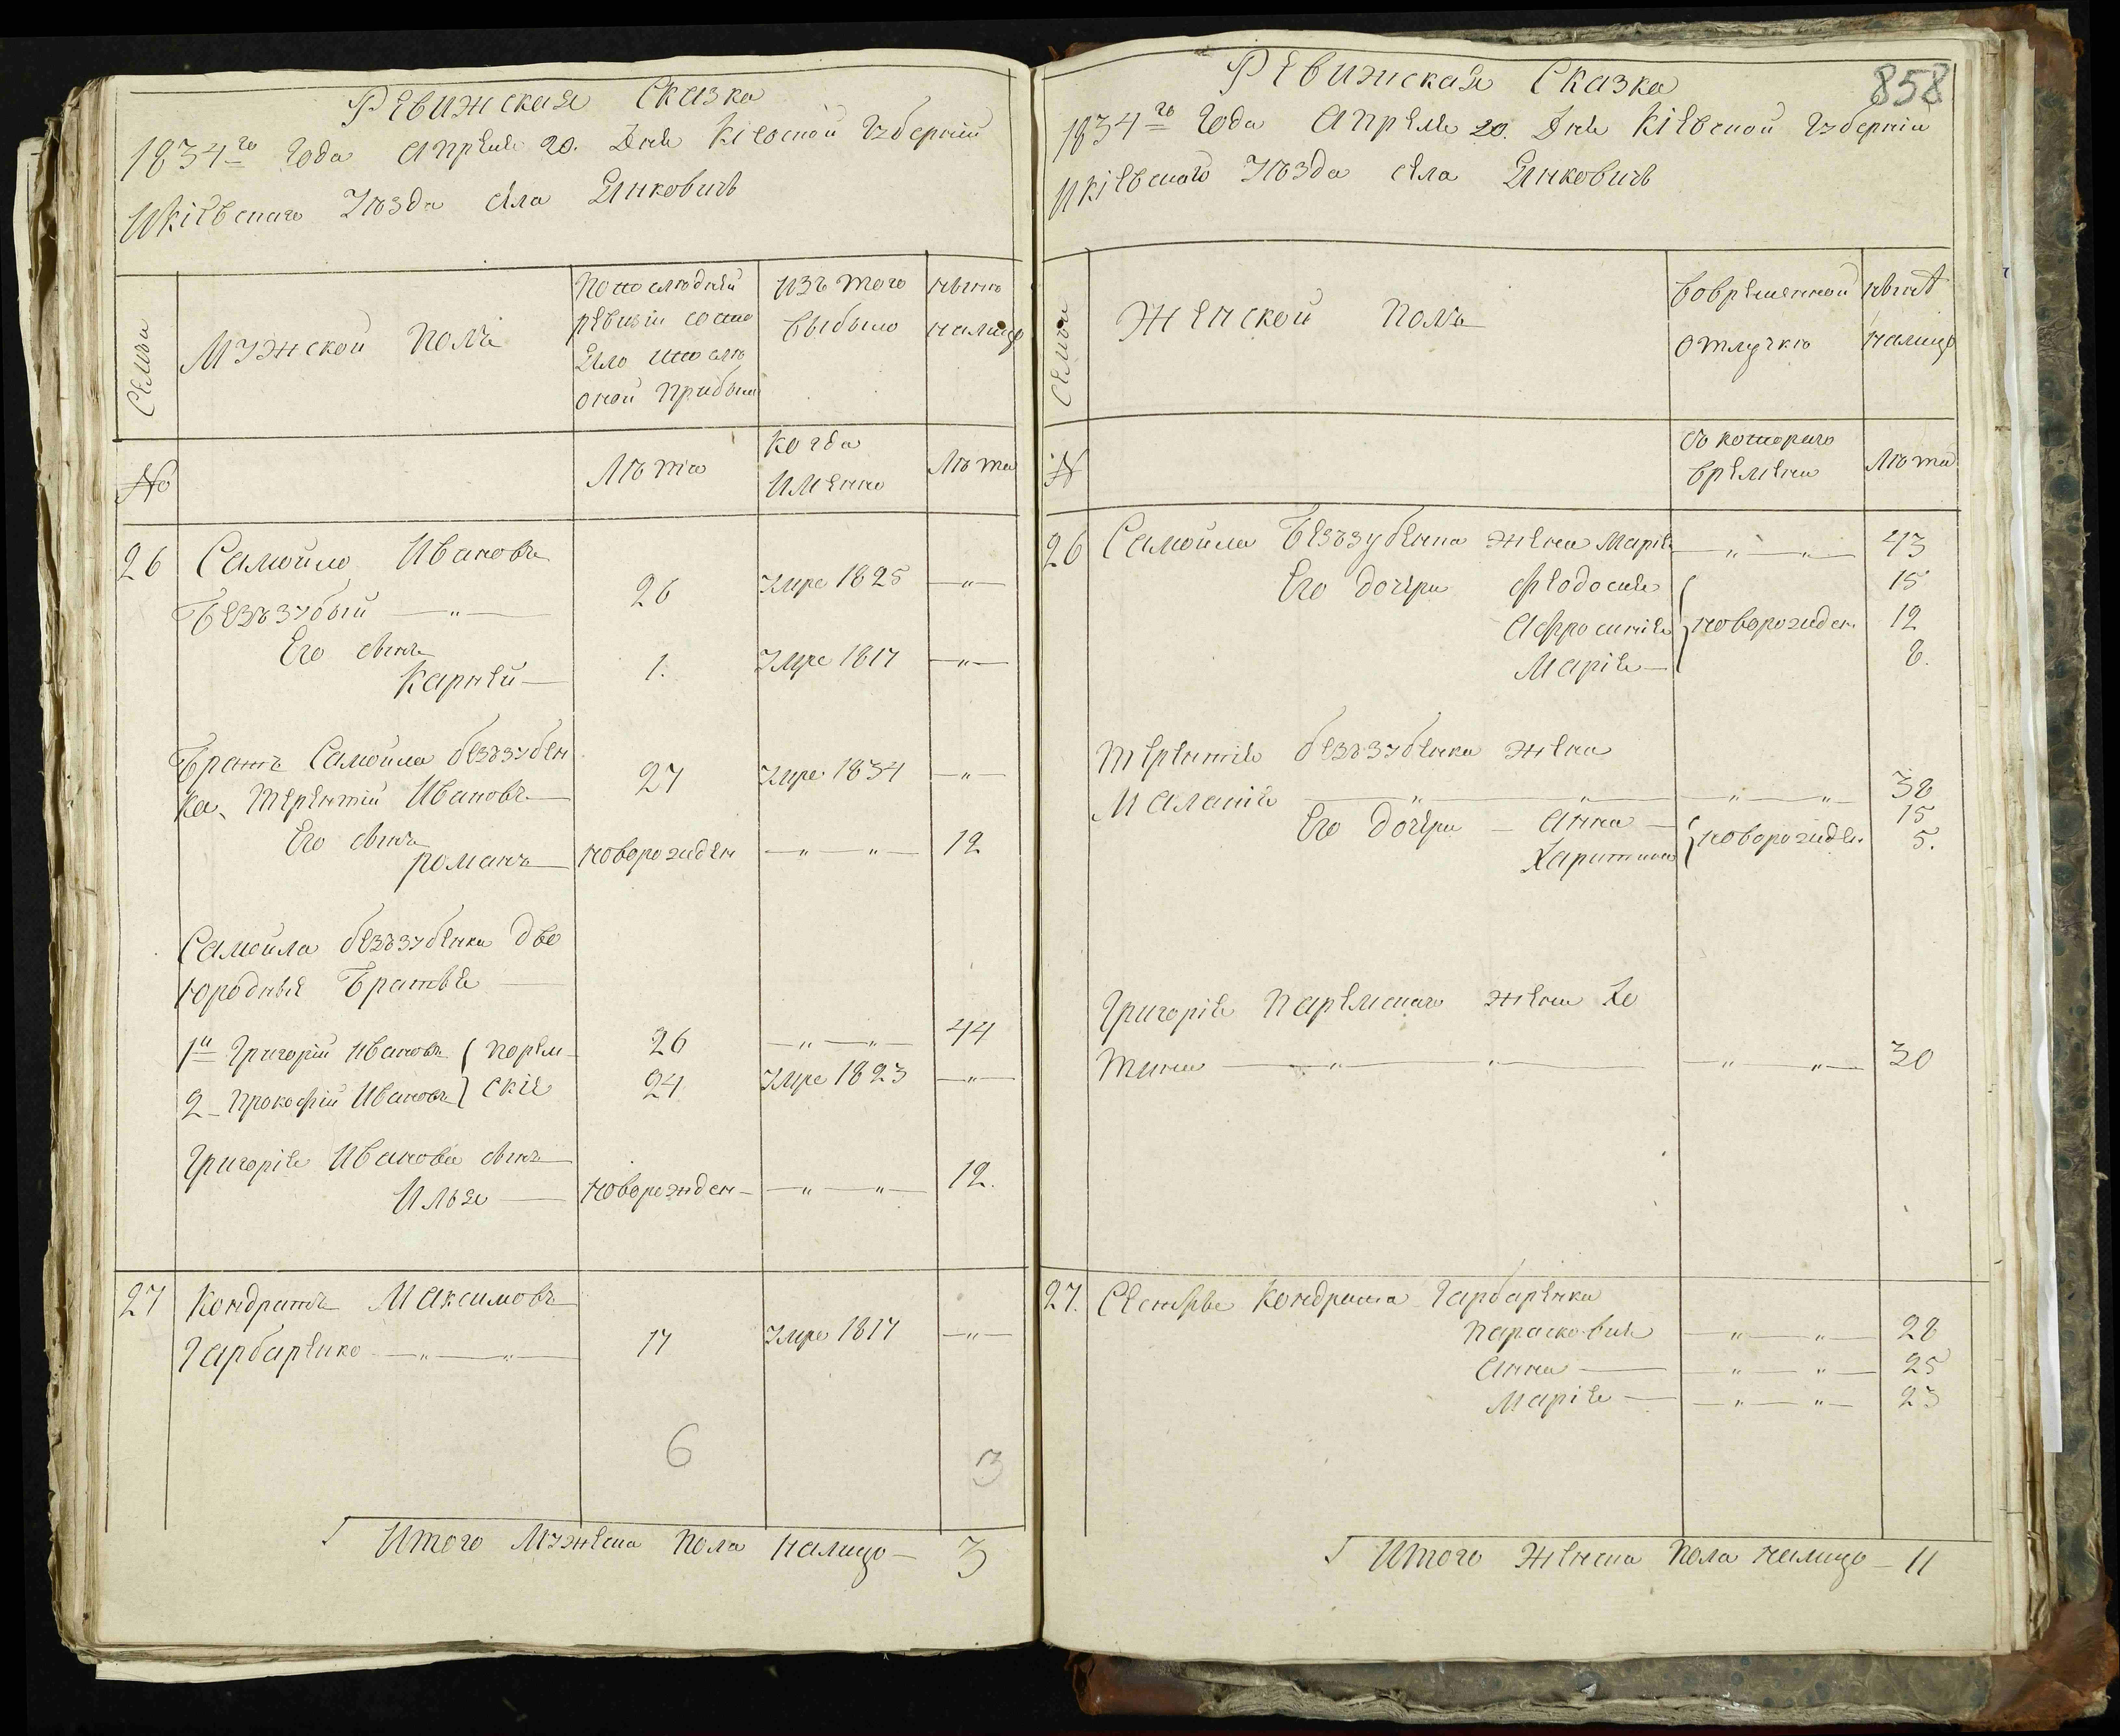 Ревижская Сказка
1834го Года Апреля 20. Дня Кіевской Губерніи
Икіевскаго Уѣзда села Янковичь
Семьи
Мужской полъ
По последней
ревизіи состо
яло и после
оной прибыло
изъ того
выбыло
ныне
налицо
№
Лѣта
Когда
Именно
Лѣта
26 Самойло Ивановъ
Беззубый — „ — 26 Умре 1825 — „ —
Его сынъ
Карней — 1. Умре 1817 — „ —
Братъ Самойла беззубен
ка, Терентій Ивановъ — 27 Умре 1834 — „ —
Его сынъ
романъ — новорожден — „ — „ — 12
Самойла беззубенка дво
юродныя Братья —
1й Григорій Ивановъ порем- 26 — „ — „ — 44
2 Прокофій Ивановъ скіе 24 Умре 1823 — „ —
Григорія Иванова сынъ —
Илья — новорожден — „ — „ — 12.
27 Кондратъ Максимовъ
Гарбаренко — „ — „ — 17 Умре 1817 — „ —
6 3
Итого Мужеска пола налицо — 3
858
Ревижская Сказка
1834го Года Апреля 20. Дня Кіевской Губерніи
Икіевскаго Уѣзда села Янковичь
Семьи
Женской полъ
Вовременной
отлучкѣ
ныне
налицо
№
съ котораго
времени
Лѣта
26 Самойла Беззубенка жена Марія — „ — „ — 43
Его дочери Феодосия 15
Афросинія новорожден. 12
Марія — 8.
Терентія беззубенка жена
Маланія — „ — „ — „ — „ — 38
Его дочери — Анна — 15
Харитина новорожден. 5.
Григорія Паремскаго жена Хо
тина — „ — „ — „ — „ — 30
27. Сестры Кондрата Гарбаренка
Парасковия — „ — „ — 28
Анна — „ — „ — 25
Марія — „ — „ — 23
Итого женска пола налицо — 11